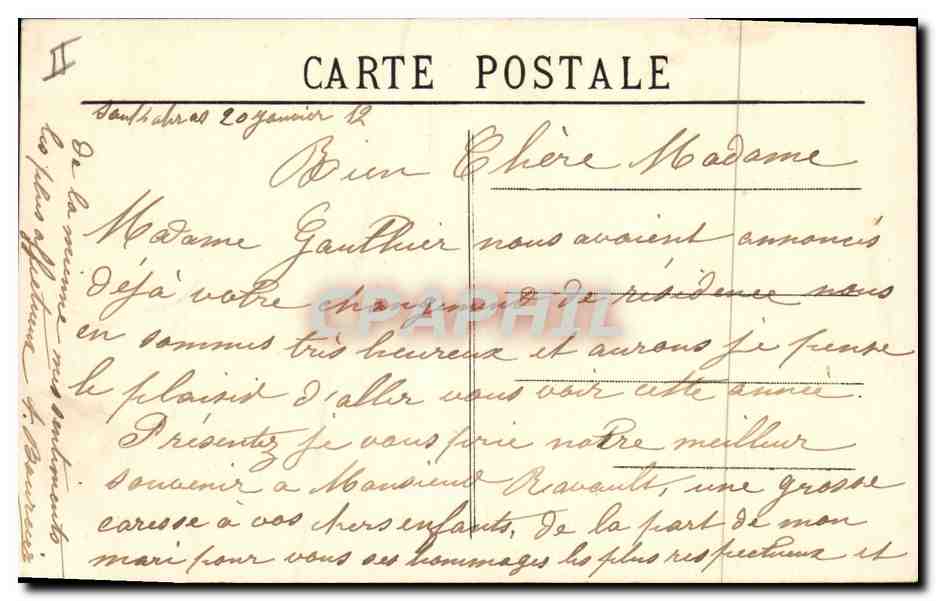 II
CARTE POSTALE
20 Janvier 12
Bien Chère Madame
Madame Gauthier nous avaient annoncés
déjà votre changement de résidence nous
en sommes très heureux et aurons je pense
le plaisir d'aller vous voir cette année.
Présentez je vous prie notre meilleur
souvenir à Monsieur Ravault, une grosse
caresse à vos chers enfants, de la part de mon
mari pour vous ses hommages les plus respectueux et
de la mienne mes sentiments
les plus affectueux
CPAPHIL